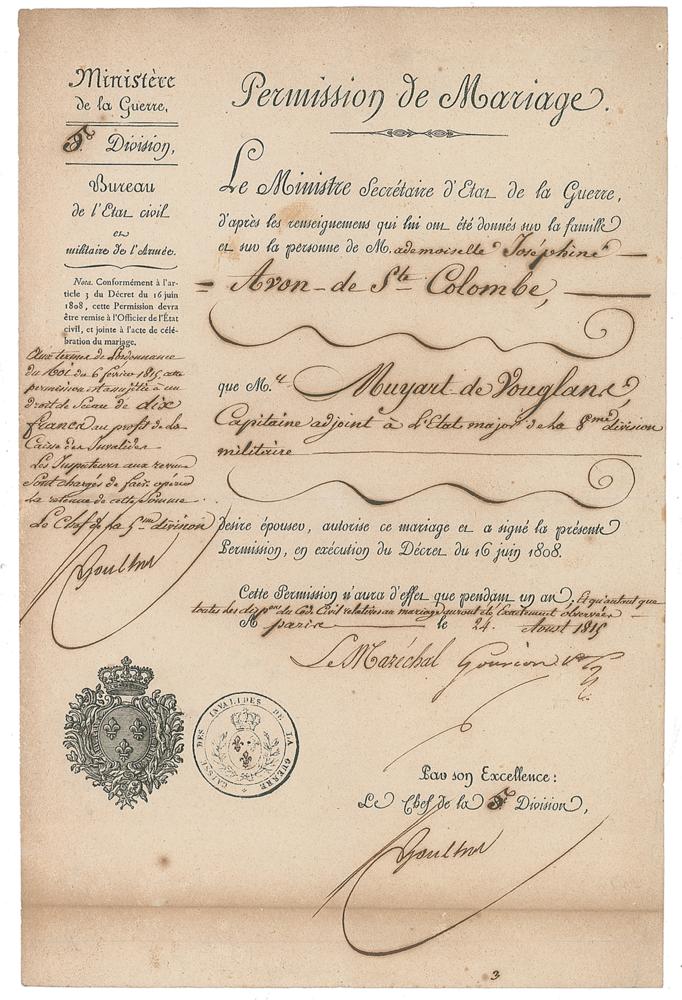 Ministère
de la Guerre,
5e. Division,
Bureau
de l'Etat civil
et
militaire de l'Armée.
Nota. Conformément à l'ar-
ticle 3 du Décret du 16 juin
1808, cette Permission devra
être remise à l'Officier de l'État
civil, et jointe à l'acte de célé-
bration du mariage.
Aux termes de l'ordonnance
du Roi du 6 février 1815 cette
permission est assujétie à un
droit de Sceau de dix
francs au profit de la
Caisse des Invalides
Les Inspecteurs aux revues
sont chargés de faire opérer
la retenue de cette somme.
Le Chef de la 5me division
Permission de Mariage.
Le Ministre Secrétaire d'Etat de la Guerre,
d'après les renseignemens qui lui ont été donnés sur la famille
et sur la personne de M.ademoiselle Joséphine
Avon-de Ste Colombe,
que M.r Muyart-de Vouglans,
Capitaine adjoint à l'Etat major de la 8me division
militaire
desire épouser, autorise ce mariage et a signé la présente
Permission, en exécution du Décret du 16 juin 1808.
Cette Permission n'aura d'effet que pendant un an, Et qu'autant que
toutes les disp.ons du Code Civil relatives au mariage auront été Exactement observées
A paris le 24. Aoust 1815
Le Maréchal Gouvion St
CAISSE DES INVALIDES DE LA GUERRE
Par son Excellence:
Le Chef de la 5e Division,
3